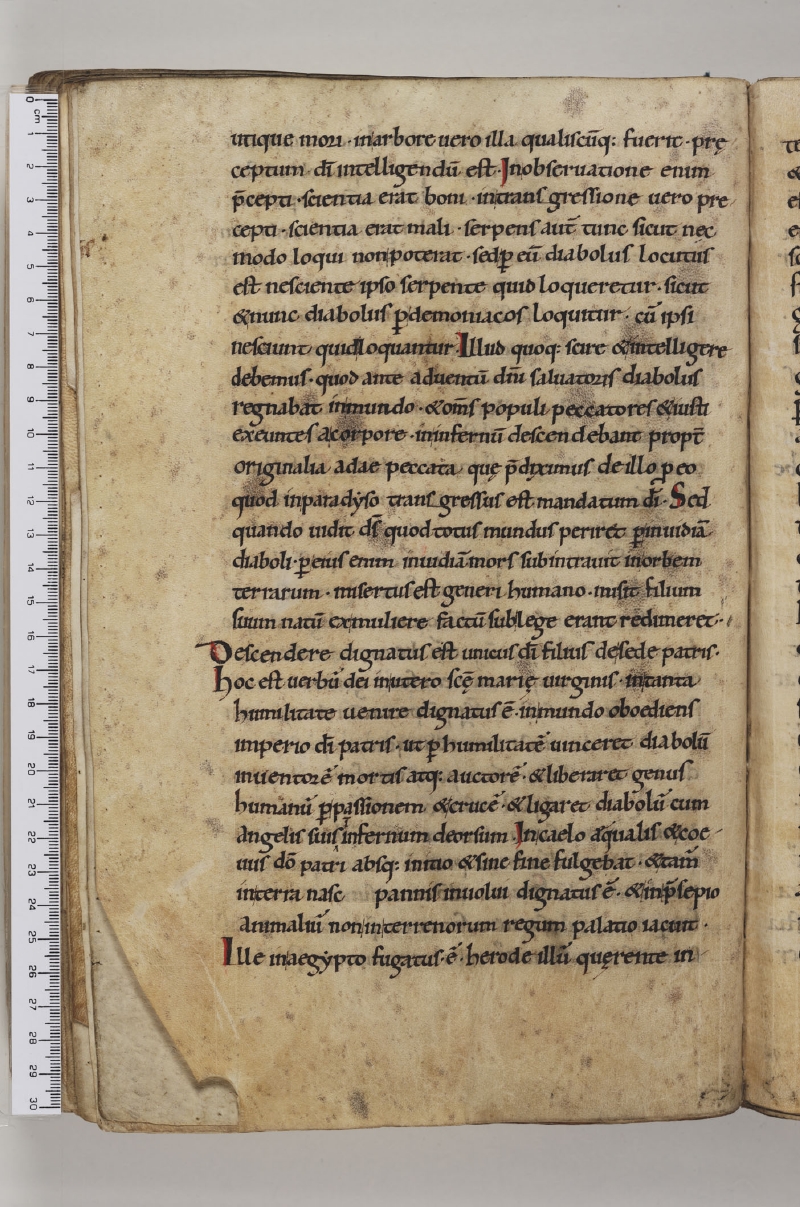 utique mori · inarbore uero illa qualiscūq: fuerit · prę
ceptum dī intelligendū est · Inobseruatione enim
p̄cepti · scientia erat boni · intransgressione uero pre
cepti · scientia erat mali · serpens aut̄ tunc sicut nec
modo loqui nonpoterat · sedꝑ eū diabolus locutus
est nesciente ipso serpente quid loqueretur · sicut
&nunc diabolus ꝑdemoniacos loquitur · cū ipsi
nesciunt quidloquantur · Illud quoq: scire &intelligere
debemus · quod ante aduentū dn̄i saluatoris diabolus
regnabat inmundo · &om̄s populi peccatores &iusti
exeuntes acorpore · ininfernū descendebant propt̄
originalia adae peccata quę p̄diximus deillo ꝑeo
quod inparadẏso transgressus est mandatum dī · Sed
quando uidit ds̄ quodtotus mundus periret ꝑinuidiā
diaboli · ꝑeius enim inuidiā mors subintrauit inorbem
terrarum · misertus est generi humano · misit filium
suum natū exmuliere factū sublege erant redimeret ·
Descendere dignatus est unicus dī filius desede patris ·
hoc est uerbū dei inutero scę̄ marię uirginis · intanta
humilitate uenire dignatus ē · inmundo oboediens
imperio dī patris · ut ꝑhumilitatē uinceret diabolū
inuentorē mortis atq: auctorē · &liberaret genus
humanū ꝑpassionem &crucē · &ligaret diabolū cum
angelis suis infernum deorsum · Incaelo aequalis &coe
uus dō patri absq: initio &sine fine fulgebat · &tam̄
interra nasc pannis inuolui dignatus ē · &inp̄sepio
animaliū noninterrenorum regum palatio iacuit ·
Ille inaegẏpto fugatus · ē · herode illū quęrente in
0 cm 1 2 3 4 5 6 7 8 9 10 11 12 13 14 15 16 17 18 19 20 21 22 23 24 25 26 27 28 29 30